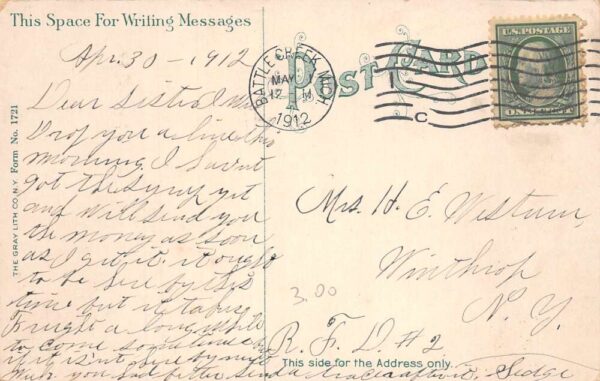 This Space For Writing Messages
POST CARD
U.S. POSTAGE
BATTLE CREEK, MICH.
MAY 1
12 M
1912
C
Apr. 30 - 1912
Dear Sister I
Drop you a line this
morning. I havent
got the Syrup yet
and will send you
the money as soon
as I get it. it ought
to be here by this
time but it takes
Freight a long while
to come sometimes
if it isn't here by
you had better send
Mrs. H. E. Westurn,
Winthrop
N. Y.
R. F. D # 2
3.00
This side for the Address only.
THE GRAY LITH CO. N.Y. Form No. 1721